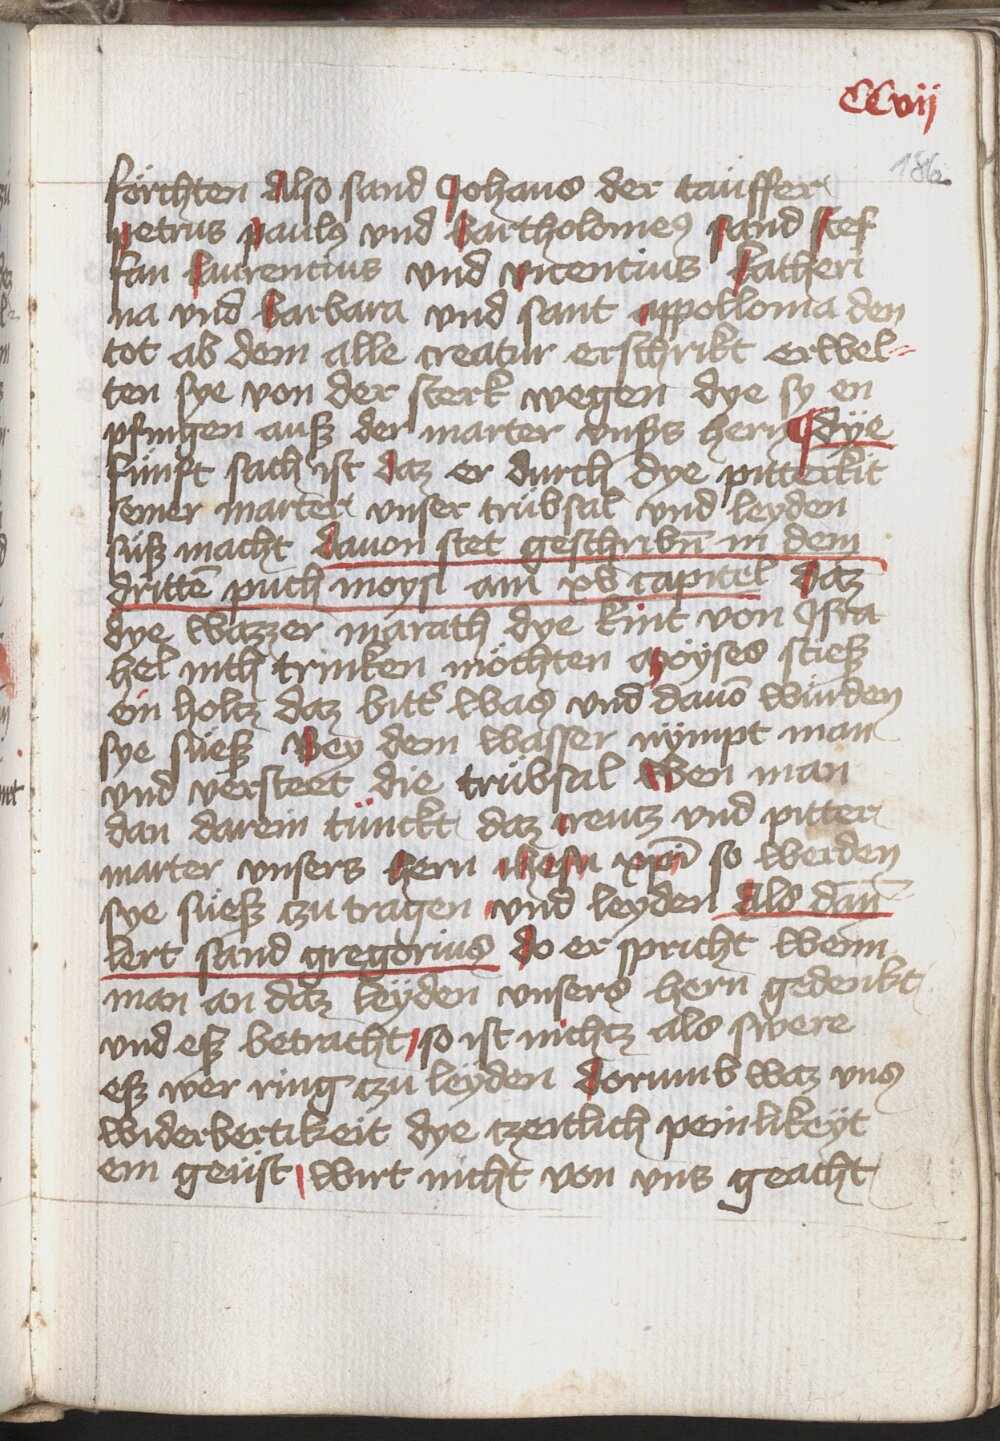 CCvij
186
förchten Also sand Johans der täuffer
petrus paulꝰ vnd bartholomeꝰ sand stef
fan laurencius vnd vicencius katheri
na vnd barbara vnd sant appollonia den
tot ab dem alle creatur erschrikt erwel⸗
ten sye von der sterk wegen dye sy en
pfingen auß der marter vnßs hern dÿe
fünft sach ist daz er durch dye pitterkit
seiner marter vnser trübsal vnd leyden
süß macht davon stet geschribn̄ in dem
dritten̄ puch moysi am xv capitel daz
dye wazzer marath dye kint von Isra
hel nith trinken möchten moÿses stieß
ein holtz daz bitt͛ waß vnd dauō würden
sye süeß Bey dem wasser nÿmpt man
vnd versteet die trübsal wen man
dan darein tünckt daz creutz vnd pitter
marter vnsers hern ihesu xp̄i so werden
sye süeß czu tragen vnd leyden Als dan̄
lert sand gregorius do er spricht wenn
man an daz leÿden vnsers hern gedenkt
vnd eß betracht so ist nichtz als swere
eß wer ring czu leyden dorumb waz vnß
widerbertikeit dye czeitlich peinlikeÿt
ein geüst wirt nicht von vns geacht